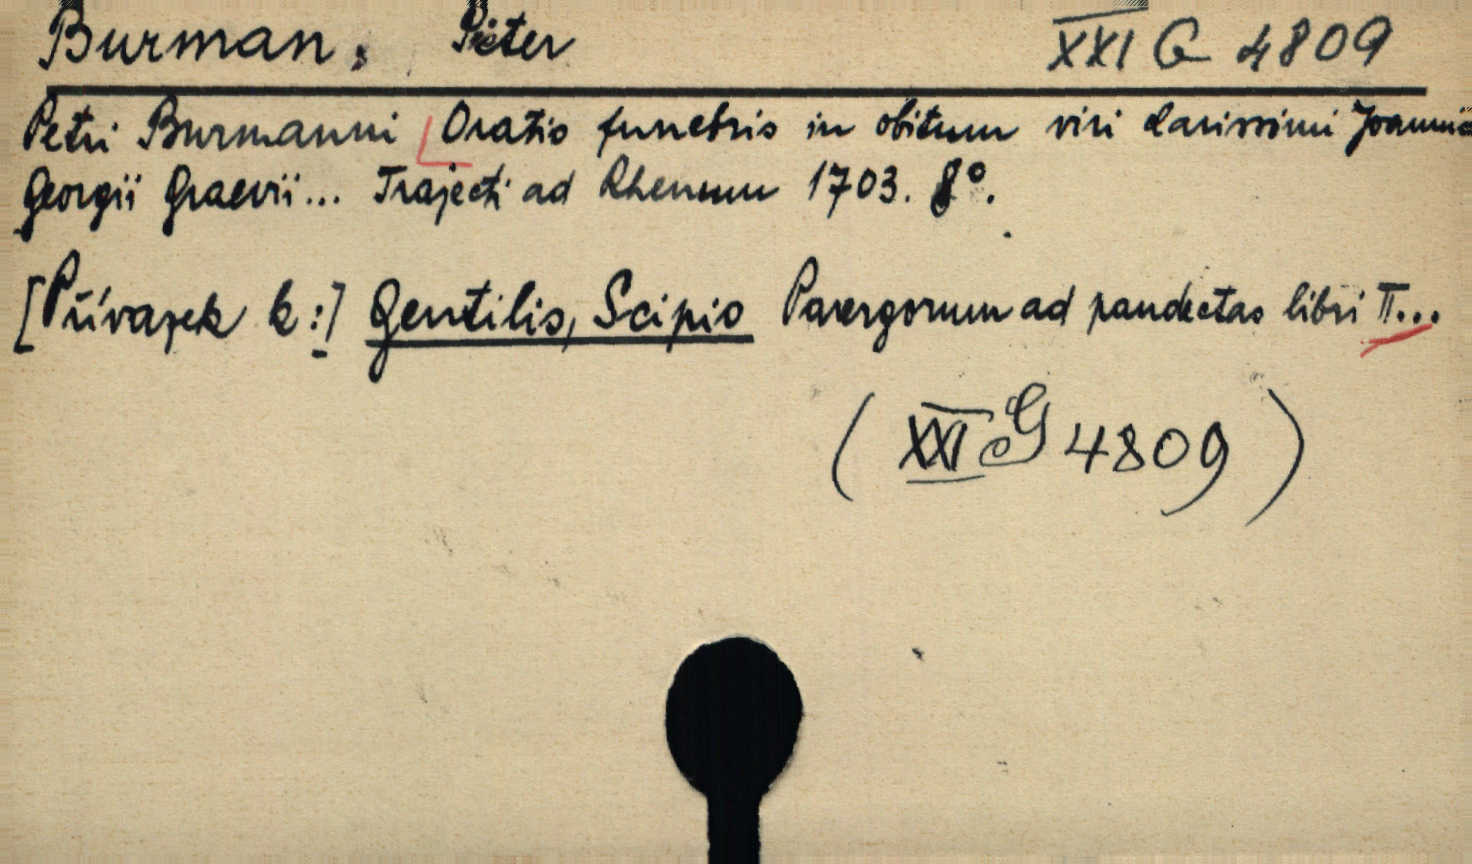 Burman, Pieter XXI G 4809
Petri Burmanni Oratio funebris in obitum viri clarissimi Joannis
Georgii Graevii... Trajecti ad Rhenum 1703. 8°.
[Přívazek k:] Gentilis, Scipio Parergorum ad pandectas libri II...
(XXI G 4809)